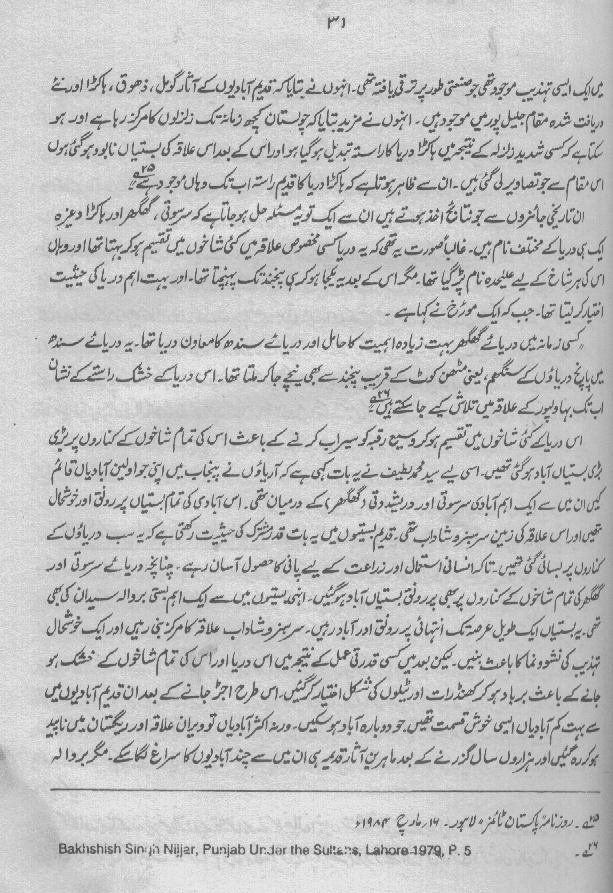 ۳۱
میں ایک ایسی تہذیب موجود تھی جو صنعتی طور پر ترقی یافتہ تھی۔ انہوں نے بتایا کہ قدیم آبادیوں کے آثار گومل، ذھوق، ہاکڑا اور نئے
دریافت شدہ مقام جلیل پور میں موجود ہیں۔ انہوں نے مزید بتایا کہ چولستان کچھ زمانہ تک زلزلوں کا مرکز رہا ہے اور ہو
سکتا ہے کہ کسی شدید زلزلہ کے نتیجہ میں ہاکڑا دریا کا راستہ تبدیل ہو گیا ہو اور اس کے بعد اس علاقہ کی بستیاں نابود ہو گئی ہوں
اس مقام سے جو تصاویر لی گئی ہیں۔ ان سے ظاہر ہوتا ہے کہ ہاکڑا دریا کا قدیم راستہ اب تک وہاں موجود ہے ۲۵؎
ان تاریخی جائزوں سے جو نتائج اخذ ہوتے ہیں ان سے ایک تو یہ مسئلہ حل ہو جاتا ہے کہ سرسوتی، گھگھر اور ہاکڑا وغیرہ
ایک ہی دریا کے مختلف نام ہیں۔ غالباً صورت یہ تھی کہ یہ دریا کسی مخصوص علاقہ میں کئی شاخوں میں تقسیم ہو کر بہتا تھا اور وہاں
اس کی ہر شاخ کے لیے علیحدہ نام پڑ گیا تھا۔ مگر اس کے بعد یہ یکجا ہو کر ہی پنجند تک پہنچتا تھا۔ اور بہت اہم دریا کی حیثیت
اختیار کر لیتا تھا۔ جب کہ ایک مورّخ نے کہا ہے۔
"کسی زمانہ میں دریائے گھگھر بہت زیادہ اہمیت کا حامل اور دریائے سندھ کا معاون دریا تھا۔ یہ دریائے سندھ
میں پانچ دریاؤں کے سنگھم، یعنی مٹھن کوٹ کے قریب پنجند سے بھی نیچے جا کر ملتا تھا۔ اس دریا کے خشک راستے کے نشان
اب تک بہاولپور کے علاقہ میں تلاش کیے جا سکتے ہیں ۲۶؎
اس دریا کے کئی شاخوں میں تقسیم ہو کر وسیع رقبہ کو سیراب کرنے کے باعث اس کی تمام شاخوں کے کناروں پر بڑی
بڑی بستیاں آباد ہو گئی تھیں۔ اسی لیے سید محمد لطیف نے یہ بات کہی ہے کہ آریاؤں نے پنجاب میں اپنی جو اولین آبادیاں قائم
کیں ان میں سے ایک اہم آبادی سرسوتی اور دریشدوتی (گھگھر) کے درمیان تھی۔ اس آبادی کی تمام بستیاں پررونق اور خوشحال
تھیں اور اس علاقہ کی زمین سرسبز و شاداب تھی۔ قدیم بستیوں میں یہ بات قدر مشترک کی حیثیت رکھتی ہے کہ یہ سب دریاؤں کے
کناروں پر بسائی گئی تھیں۔ تاکہ انسانی استعمال اور زراعت کے لیے پانی کا حصول آسان رہے۔ چنانچہ دریائے سرسوتی اور
گھگھر کی تمام شاخوں کے کناروں پر بھی پررونق بستیاں آباد ہو گئیں۔ انہی بستیوں میں سے ایک اہم بستی بروالہ سیدان کی بھی
تھی۔ یہ بستیاں ایک طویل عرصہ تک انتہائی پررونق اور آباد رہیں۔ سرسبز و شاداب علاقہ کا مرکز بنی رہیں اور ایک خوشحال
تہذیب کی نشوونما کا باعث بنیں۔ لیکن بعد میں کسی قدرتی عمل کے نتیجہ میں اس دریا اور اس کی تمام شاخوں کے خشک ہو
جانے کے باعث برباد ہو کر کھنڈرات اور ٹیلوں کی شکل اختیار کر گئیں۔ اس طرح اجڑ جانے کے بعد ان قدیم آبادیوں میں
سے بہت کم آبادیاں ایسی خوش قسمت تھیں، جو دوبارہ آباد ہو سکیں۔ ورنہ اکثر آبادیاں تو ویران علاقہ اور ریگستان میں ناپید
ہو کر رہ گئیں اور ہزاروں سال گزرنے کے بعد ماہرین آثار قدیمہ ہی ان میں سے چند آبادیوں کا سراغ لگا سکے۔ مگر بروالہ
۲۵؎۔ روزنامہ پاکستان ٹائمز، لاہور۔ ۱۶، مارچ ۱۹۸۴ء
۲۶؎۔ Bakhshish Singh Nijjar, Punjab Under the Sultans, Lahore 1979, P. 5